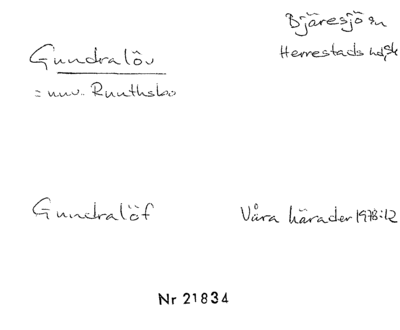 Bjäresjö sn
Herrestads hd, Sk
Gundralöv
= nuv. Ruuthsbo
Gundralöf
Våra härader 1978:12
Nr 21834